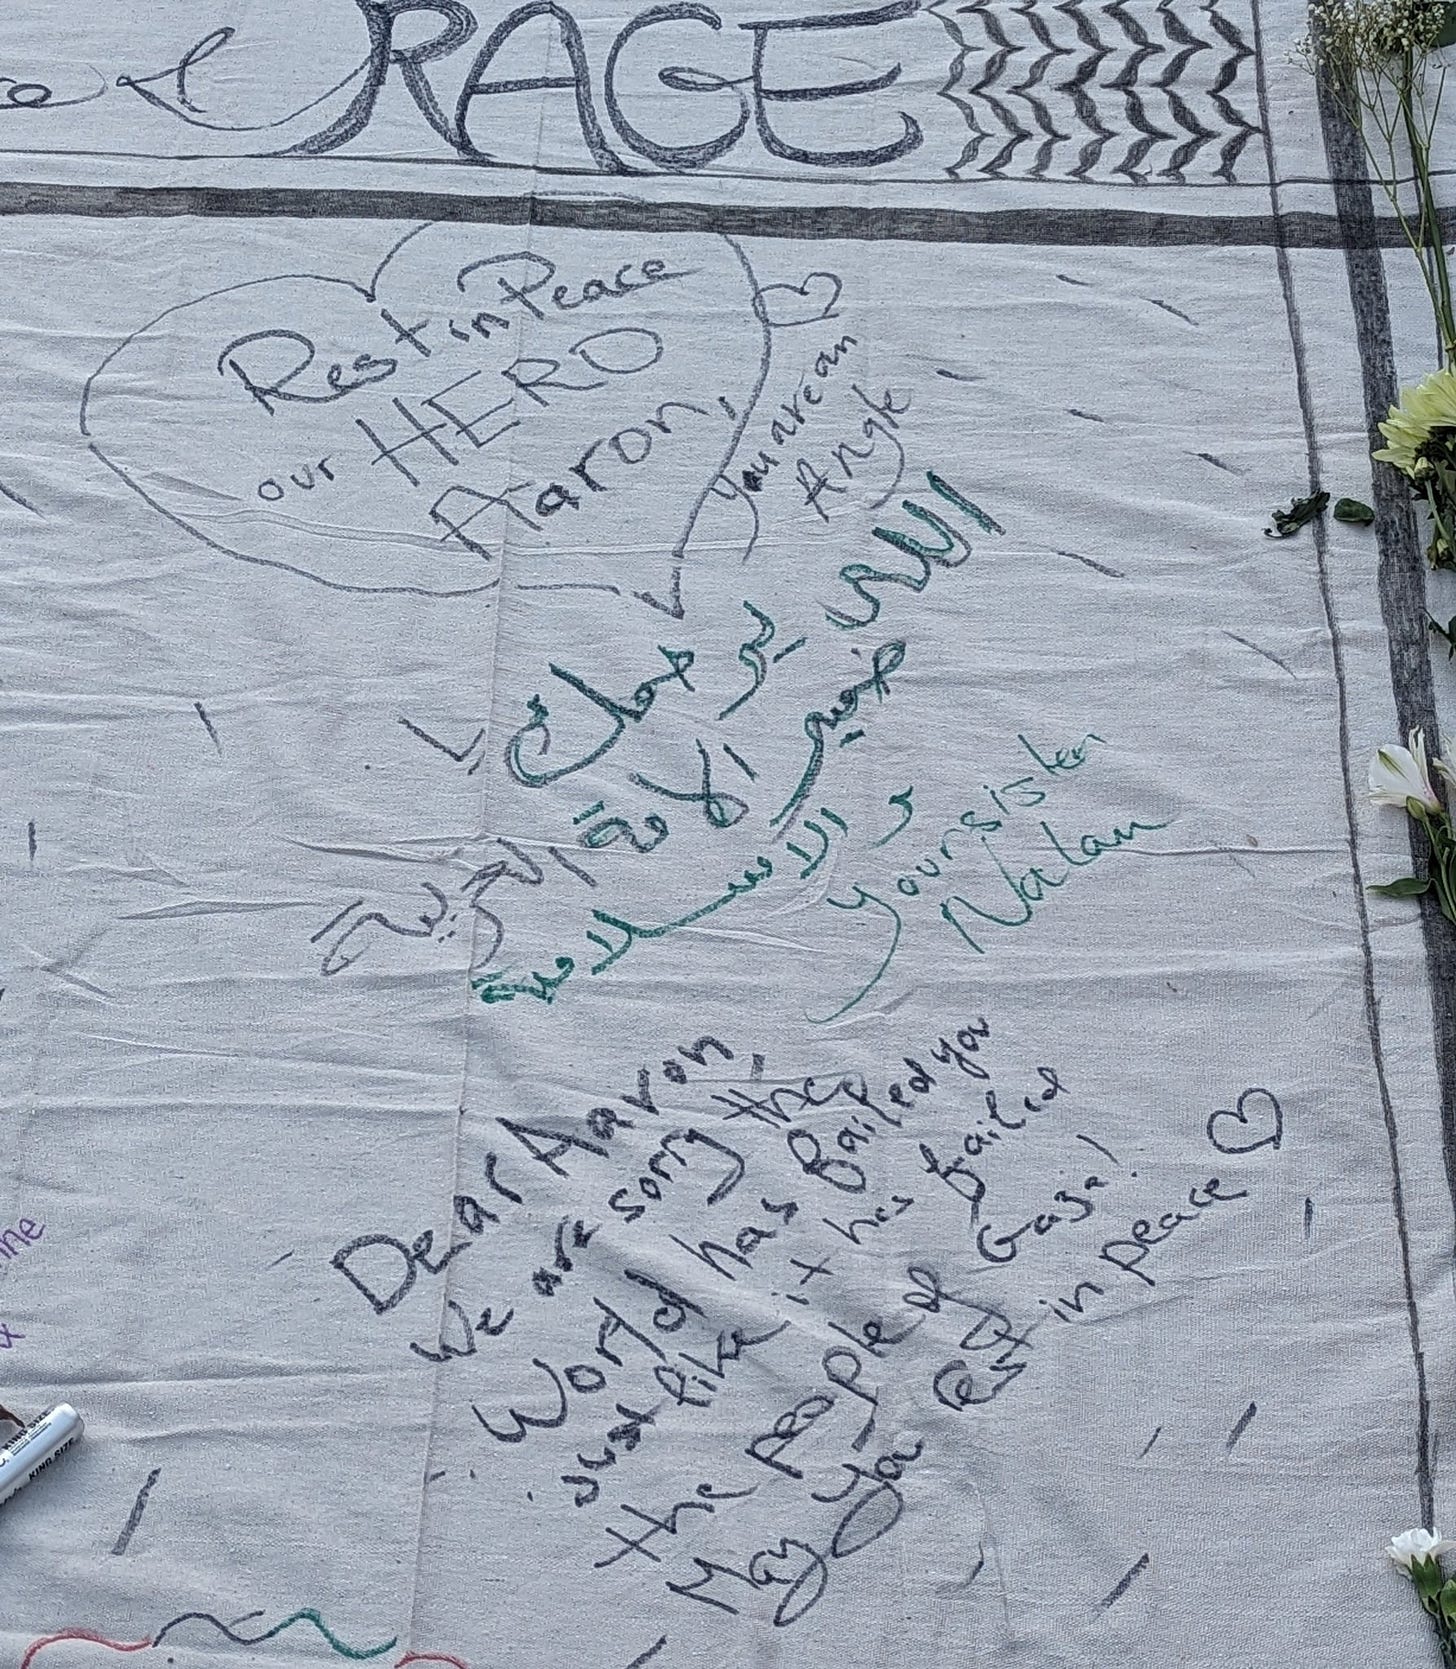 RAGE
Rest in Peace
our HERO
Aaron,
You are an
Angle
الله يرحمك يا
ضمير الامة العربية
و الاسلامية
Your sister
Nalan
Dear Aaron,
We are sorry the
World has failed you
just like it has failed
the people of Gaza!
May you rest in peace
KING SIZE
KING SIZE